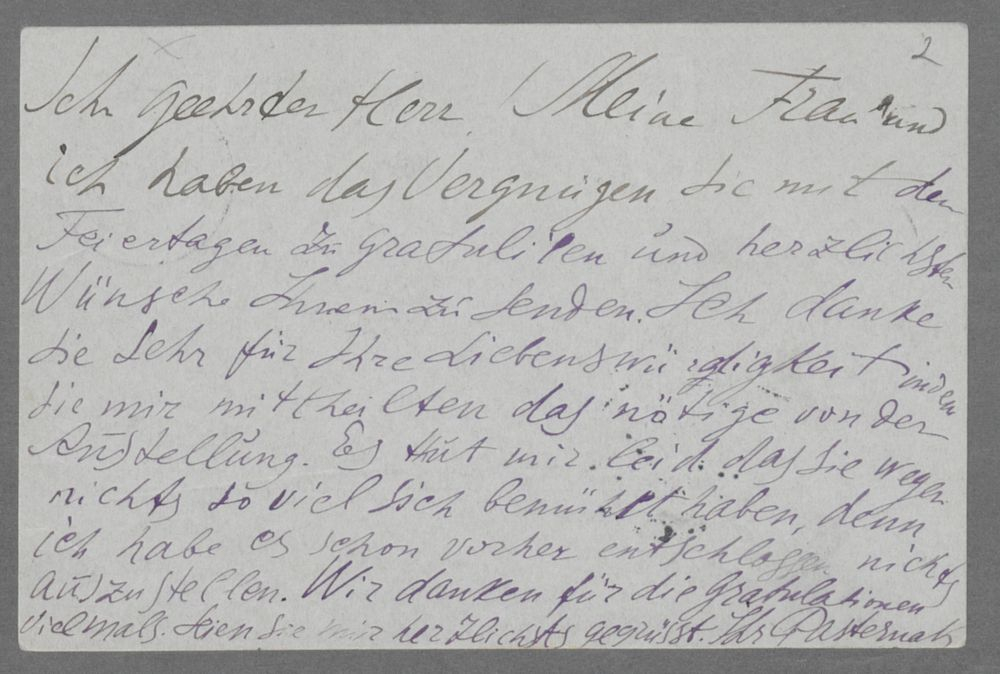 2
Sehr geehrter Herr! Meine Frau und
ich haben das Vergnügen Sie mit den
Feiertagen zu gratuliren und herzlichsten
Wünsche Ihnen zu senden. Ich danke
Sie Sehr für Ihre Liebenswürdigkeit indem
Sie mir mittheilten das nötige von der
Ausstellung. Es thut mir leid das Sie wegen
nichts so viel Sich bemüht haben, denn
ich habe es schon vorher entschlossen nichts
auszustellen. Wir danken für die Gratulationen
vielmals. Seien Sie mir herzlichsts gegrüsst. Ihr Pasternak